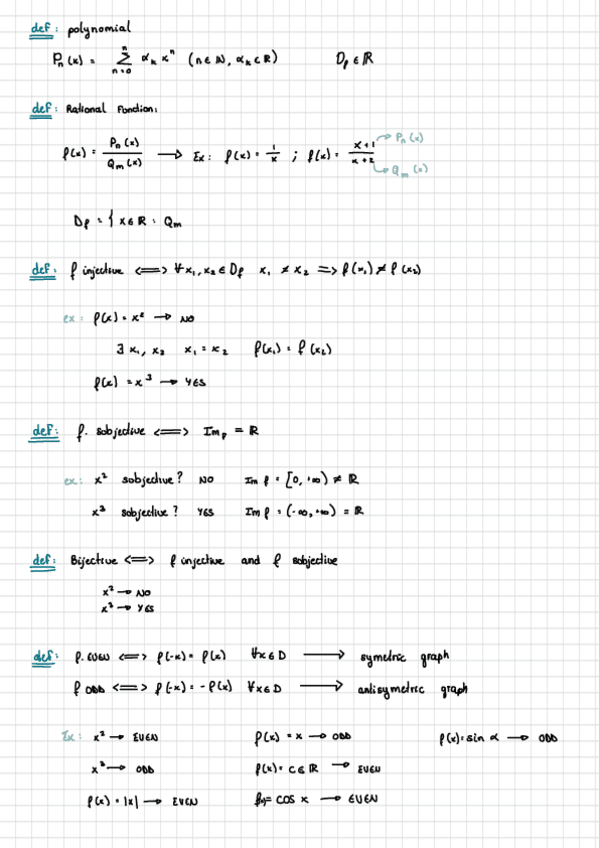 def: polynomial
Pₙ(x) = ∑ₙ₌₀ⁿ αₖ xⁿ (n∈ℕ, αₖ∈ℝ) D_f ∈ ℝ
def: Rational Fonction:
f(x) = Pₙ(x) / Qₘ(x) → Ex: f(x) = 1/x ; f(x) = x+1 / x+2 → Pₙ(x) → Qₘ(x)
D_f = { x∈ℝ : Qₘ
def: f injective <=> ∀x₁,x₂∈D_f x₁ ≠ x₂ => f(x₁) ≠ f(x₂)
ex: f(x) = x² → NO
∃ x₁, x₂ x₁ = x₂ f(x₁) = f(x₂)
f(x) = x³ → YES
def: f. sobjective <=> Im_f = ℝ
ex: x² sobjective? NO Im f = [0, +∞) ≠ ℝ
x³ sobjective? YES Im f = (-∞, +∞) = ℝ
def: Bijective <=> f injective and f sobjective
x² → NO
x³ → YES
def: f. EVEN <=> f(-x) = f(x) ∀x∈D → symetric graph
f ODD <=> f(-x) = -f(x) ∀x∈D → antisymetric graph
Ex: x² → EVEN f(x) = x → ODD f(x) = sin α → ODD
x³ → ODD f(x) = c∈ℝ → EVEN
f(x) = |x| → EVEN f(x) = COS x → EVEN